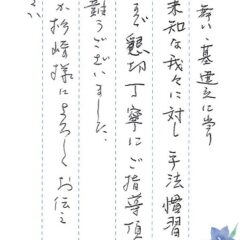 舞い、墓建立に当り
未知な我々に対し手法慣習
まで懇切丁寧にご指導頂
難うございました。
杉崎様によろしくお伝え